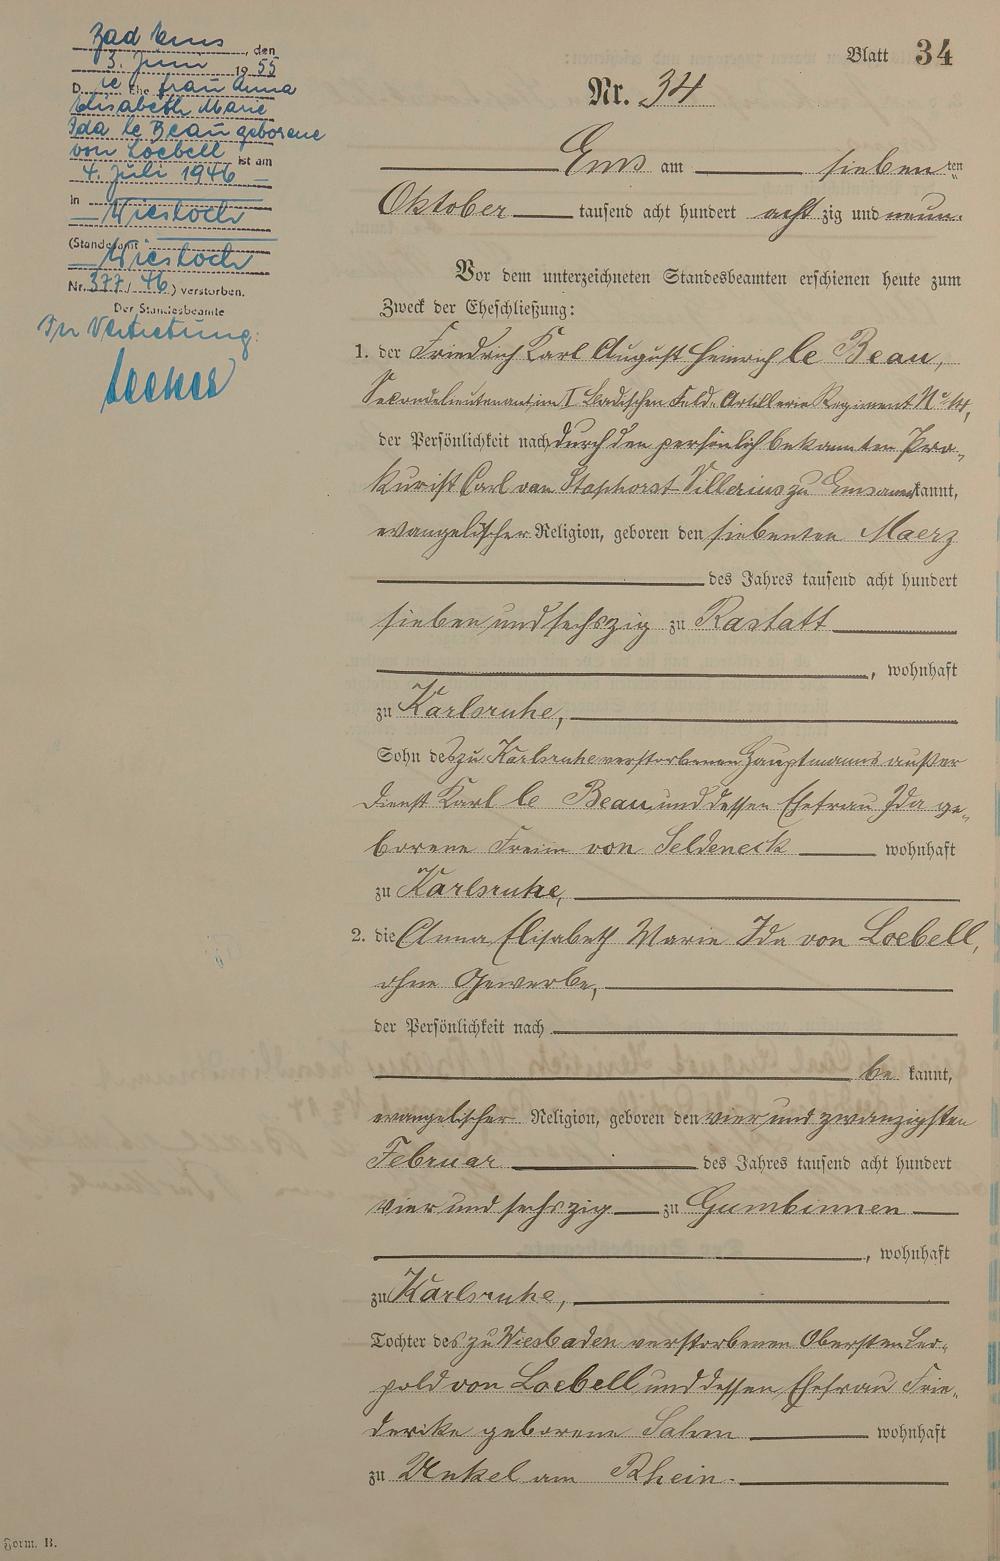 Bad Ems, den
3. Juni 1955
Die Ehefrau Anna
Elisabeth Marie
Ida le Beau geborene
von Loebell ist am
4. Juli 1946
in Wiesloch
(Standesamt
Wiesloch
Nr. 377/46) verstorben.
Der Standesbeamte
In Vertretung:
Blatt 34
Nr. 34
Ems am siebenten
Oktober tausend acht hundert achtzig und neun.
Vor dem unterzeichneten Standesbeamten erschienen heute zum
Zweck der Eheschließung:
1. der Friedrich Karl August Heinrich le Beau,
Secondelieutenant im I Badischen Feld-Artillerie Regiment No 14,
der Persönlichkeit nach durch den persönlich bekannten Pro-
kurist Carl van Staphorst Villerius zu Ems anerkannt,
evangelischer Religion, geboren den siebenten Maerz
des Jahres tausend acht hundert
sieben und sechszig zu Rastatt
, wohnhaft
zu Karlsruhe,
Sohn des zu Karlsruhe verstorbenen Hauptmanns außer
Dienst Karl le Beau und dessen Ehefrau Ida ge-
borene Freiin von Seldeneck wohnhaft
zu Karlsruhe,
2. die Anna Elisabeth Marie Ida von Loebell,
ohne Gewerbe,
der Persönlichkeit nach
bekannt,
evangelischer Religion, geboren den vier und zwanzigsten
Februar des Jahres tausend acht hundert
vier und sechszig zu Gumbinnen
, wohnhaft
zu Karlsruhe,
Tochter des zu Wiesbaden verstorbenen Obersten Leo-
pold von Loebell und dessen Ehefrau Frie-
derike geborene Salm wohnhaft
zu Unkel am Rhein.
Form. B.